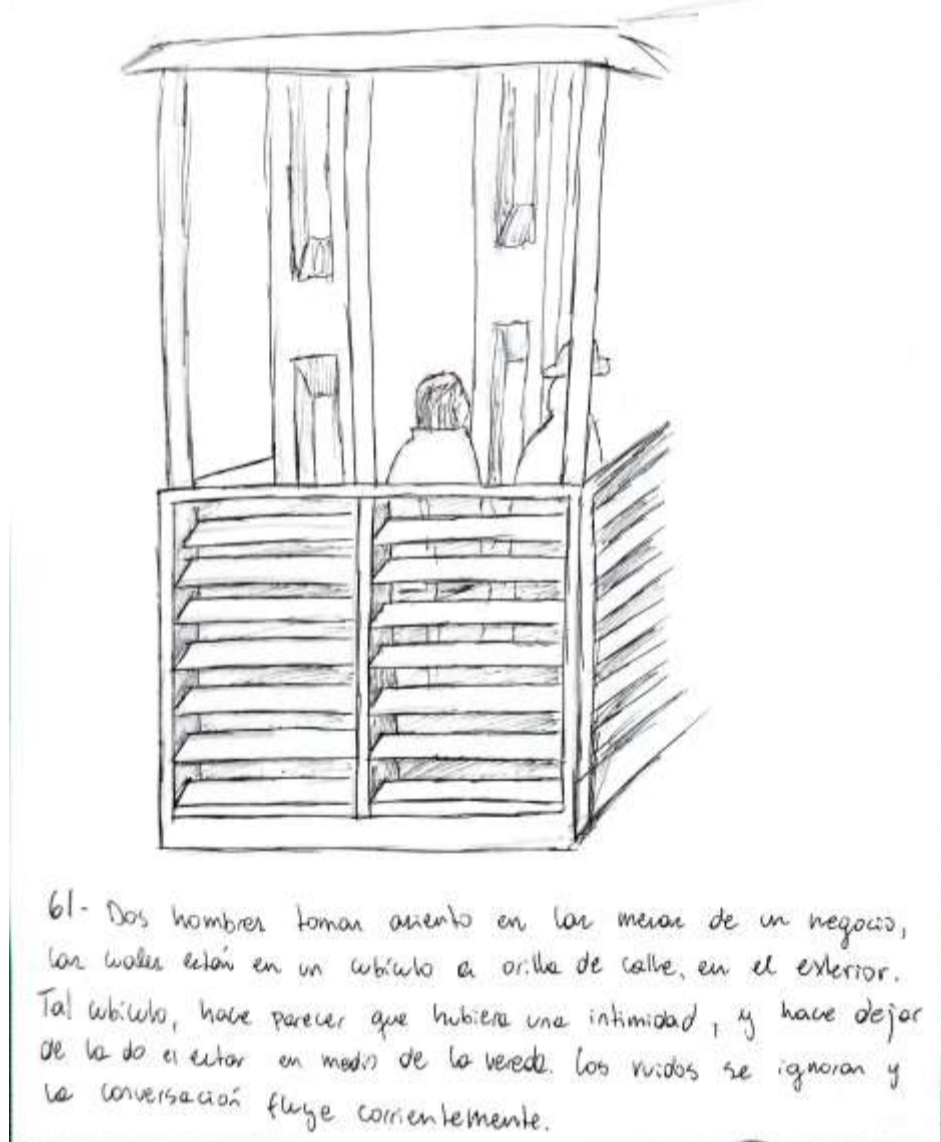 61- Dos hombres toman asiento en las mesas de un negocio,
las cuales están en un cubículo a orilla de calle, en el exterior.
Tal cubículo, hace parecer que hubiera una intimidad, y hace dejar
de la do el estar en medio de la vereda. Los ruidos se ignoran y
la conversación fluye corrientemente.